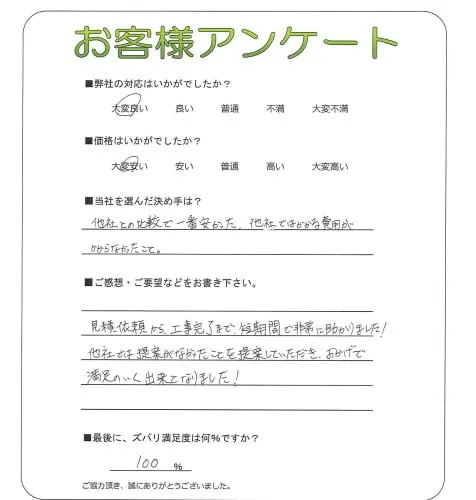 お客様アンケート
■弊社の対応はいかがでしたか？
大変良い 良い 普通 不満 大変不満
■価格はいかがでしたか？
大変安い 安い 普通 高い 大変高い
■当社を選んだ決め手は？
他社との比較で一番安かった、他社ではかかる費用が
かからなかったこと。
■ご感想・ご要望などをお書き下さい。
見積依頼から、工事完了まで、短期間で非常に助かりました！
他社では提案がなかったことを提案していただき、おかげで
満足のいく出来となりました！
■最後に、ズバリ満足度は何％ですか？
100 ％
ご協力頂き、誠にありがとうございました。